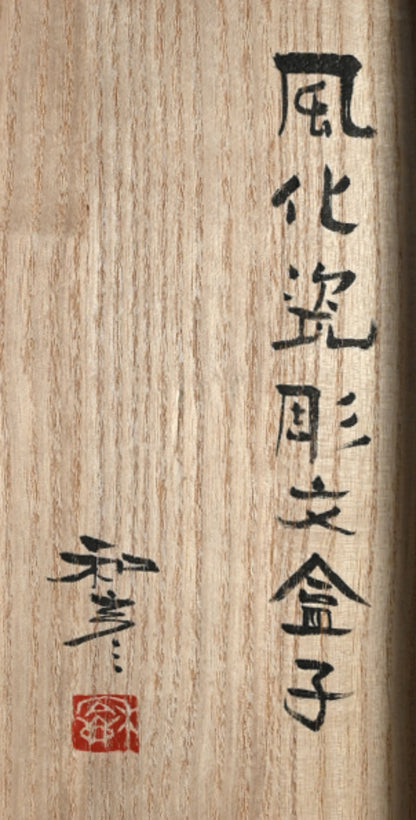 風化瓷彫文盒子
和彦